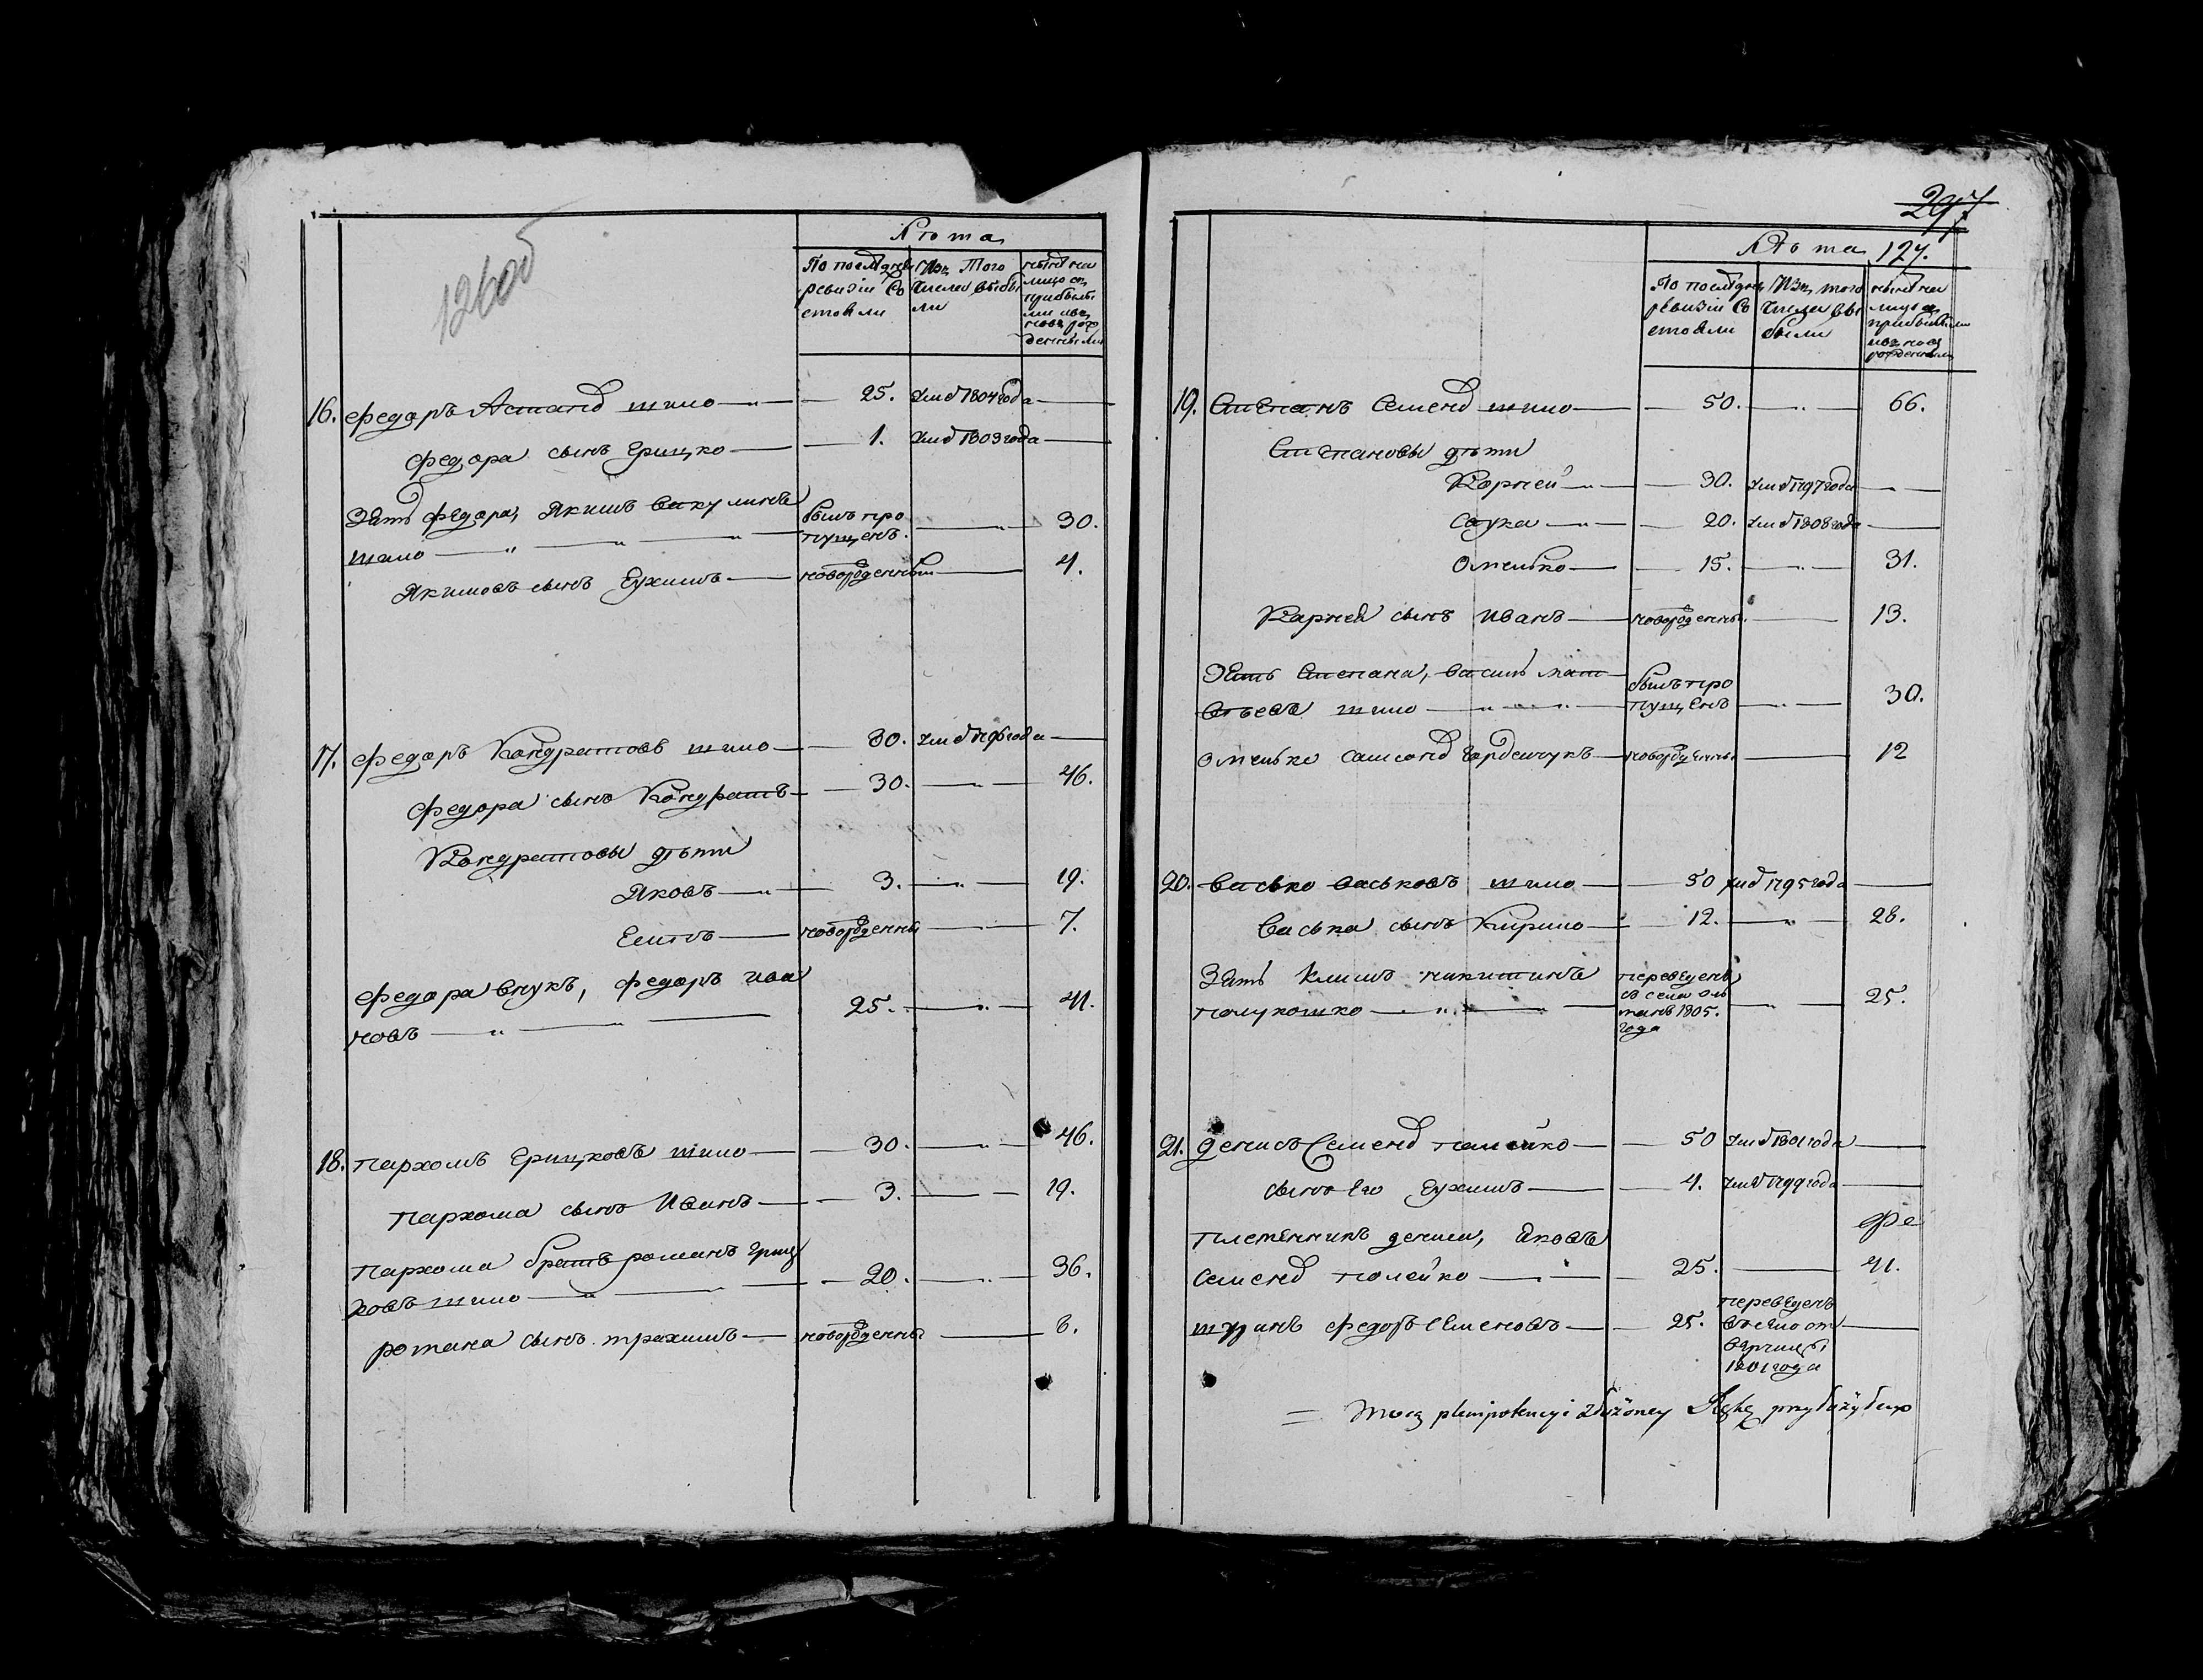 Лѣта
По послѣдней ревизіи состояли
Изъ того числа выбыли
нынѣ на лицо съ прибылыми и новорожденными
16. Федоръ шило — 25. Умеръ 1804 года —
Федора сынъ Грицко — 1. Умеръ 1803 года —
Зять Федора, Якимъ Вакулинъ
шило — былъ пропущенъ. — 30.
Якимовъ сынъ Еухимъ — новорожденный — 4.
17. Федоръ Кондратовъ шило — 30. Умеръ 1796 года —
Федора сынъ Кондратъ — 30. — 46.
Кондратовы дѣти
Яковъ — 3. — 19.
новорожденный — 7.
Федора внукъ, Федоръ Ива
новъ — 25. — 41.
18. Пархомъ Грицковъ шило — 30. — 46.
Пархома сынъ Иванъ — 3. — 19.
Пархома братъ Романъ Гриц
ковъ шило — 20. — 36.
Романа сынъ Трахимъ — новорожденный — 6.
297
127.
Лѣта
По послѣдней ревизіи состояли
Изъ того числа выбыли
нынѣ на лицо съ прибылыми и новорожденными
19. Степанъ Семеновъ шило — 50. — 66.
Степановы дѣти
Корней — 30. Умеръ 1797 года —
Саука — 20. Умеръ 1808 года —
Омелько — 15. — 31.
Корнея сынъ Иванъ — новорожденный — 13.
Зять Степана, Василь Мат
вѣевъ шило — былъ пропущенъ — 30.
Омелько — новорожденный — 12
20. Васько Васьковъ шило — 50 Умеръ 1795 года —
Васька сынъ Кирило — 12. — 28.
Зять Климъ Никитинъ
Полукошко — переведенъ съ села 1805. года — 25.
21. Денисъ Семеновъ Полейко — 50 Умеръ 1801 года —
сынъ его Еухимъ — 4. Умеръ 1799 года —
Племенникъ Дениса, Яковъ
Семеновъ Полейко — 25. — 41.
шуринъ Федоръ Семеновъ — 25. переведенъ 1801 года —
= Mocą plenipotencyi złożoney Rękę